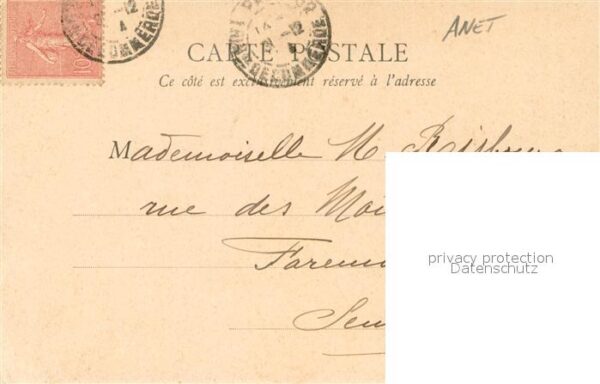 ANET
10
CARTE POSTALE
Ce côté est exclusivement réservé à l'adresse
Mademoiselle M.
rue des Moi
Farem
privacy protection
Datenschutz